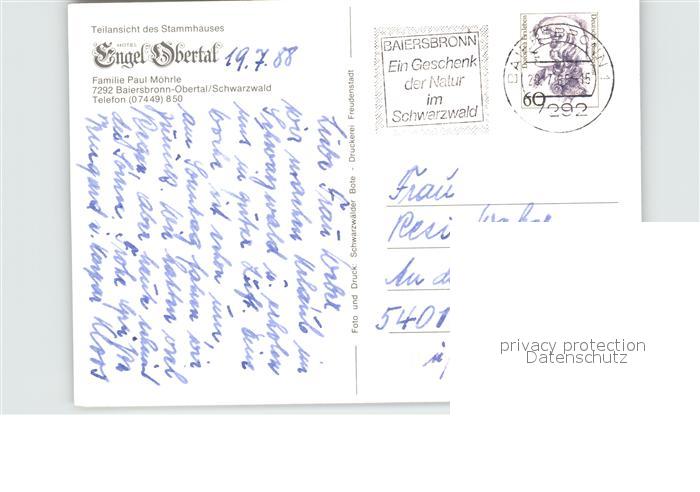 Teilansicht des Stammhauses
HOTEL
Engel Obertal
19.7.88
Familie Paul Möhrle
7292 Baiersbronn-Obertal/Schwarzwald
Telefon (07449) 850
Liebe Frau
wir machen Urlaub im
Schwarzwald u. erholen
uns in guter Luft. Eine
Woche ist schon um,
am Sonntag fahren wir
zurück. Wir hatten viel
Regen, aber heute scheint
die Sonne. Frohe Grüße
Foto und Druck: Schwarzwälder Bote - Druckerei Freudenstadt
BAIERSBRONN
Ein Geschenk
der Natur
im
Schwarzwald
BAIERSBRONN 1
7292
60
Frau
Resi
An d
5401
privacy protection
Datenschutz